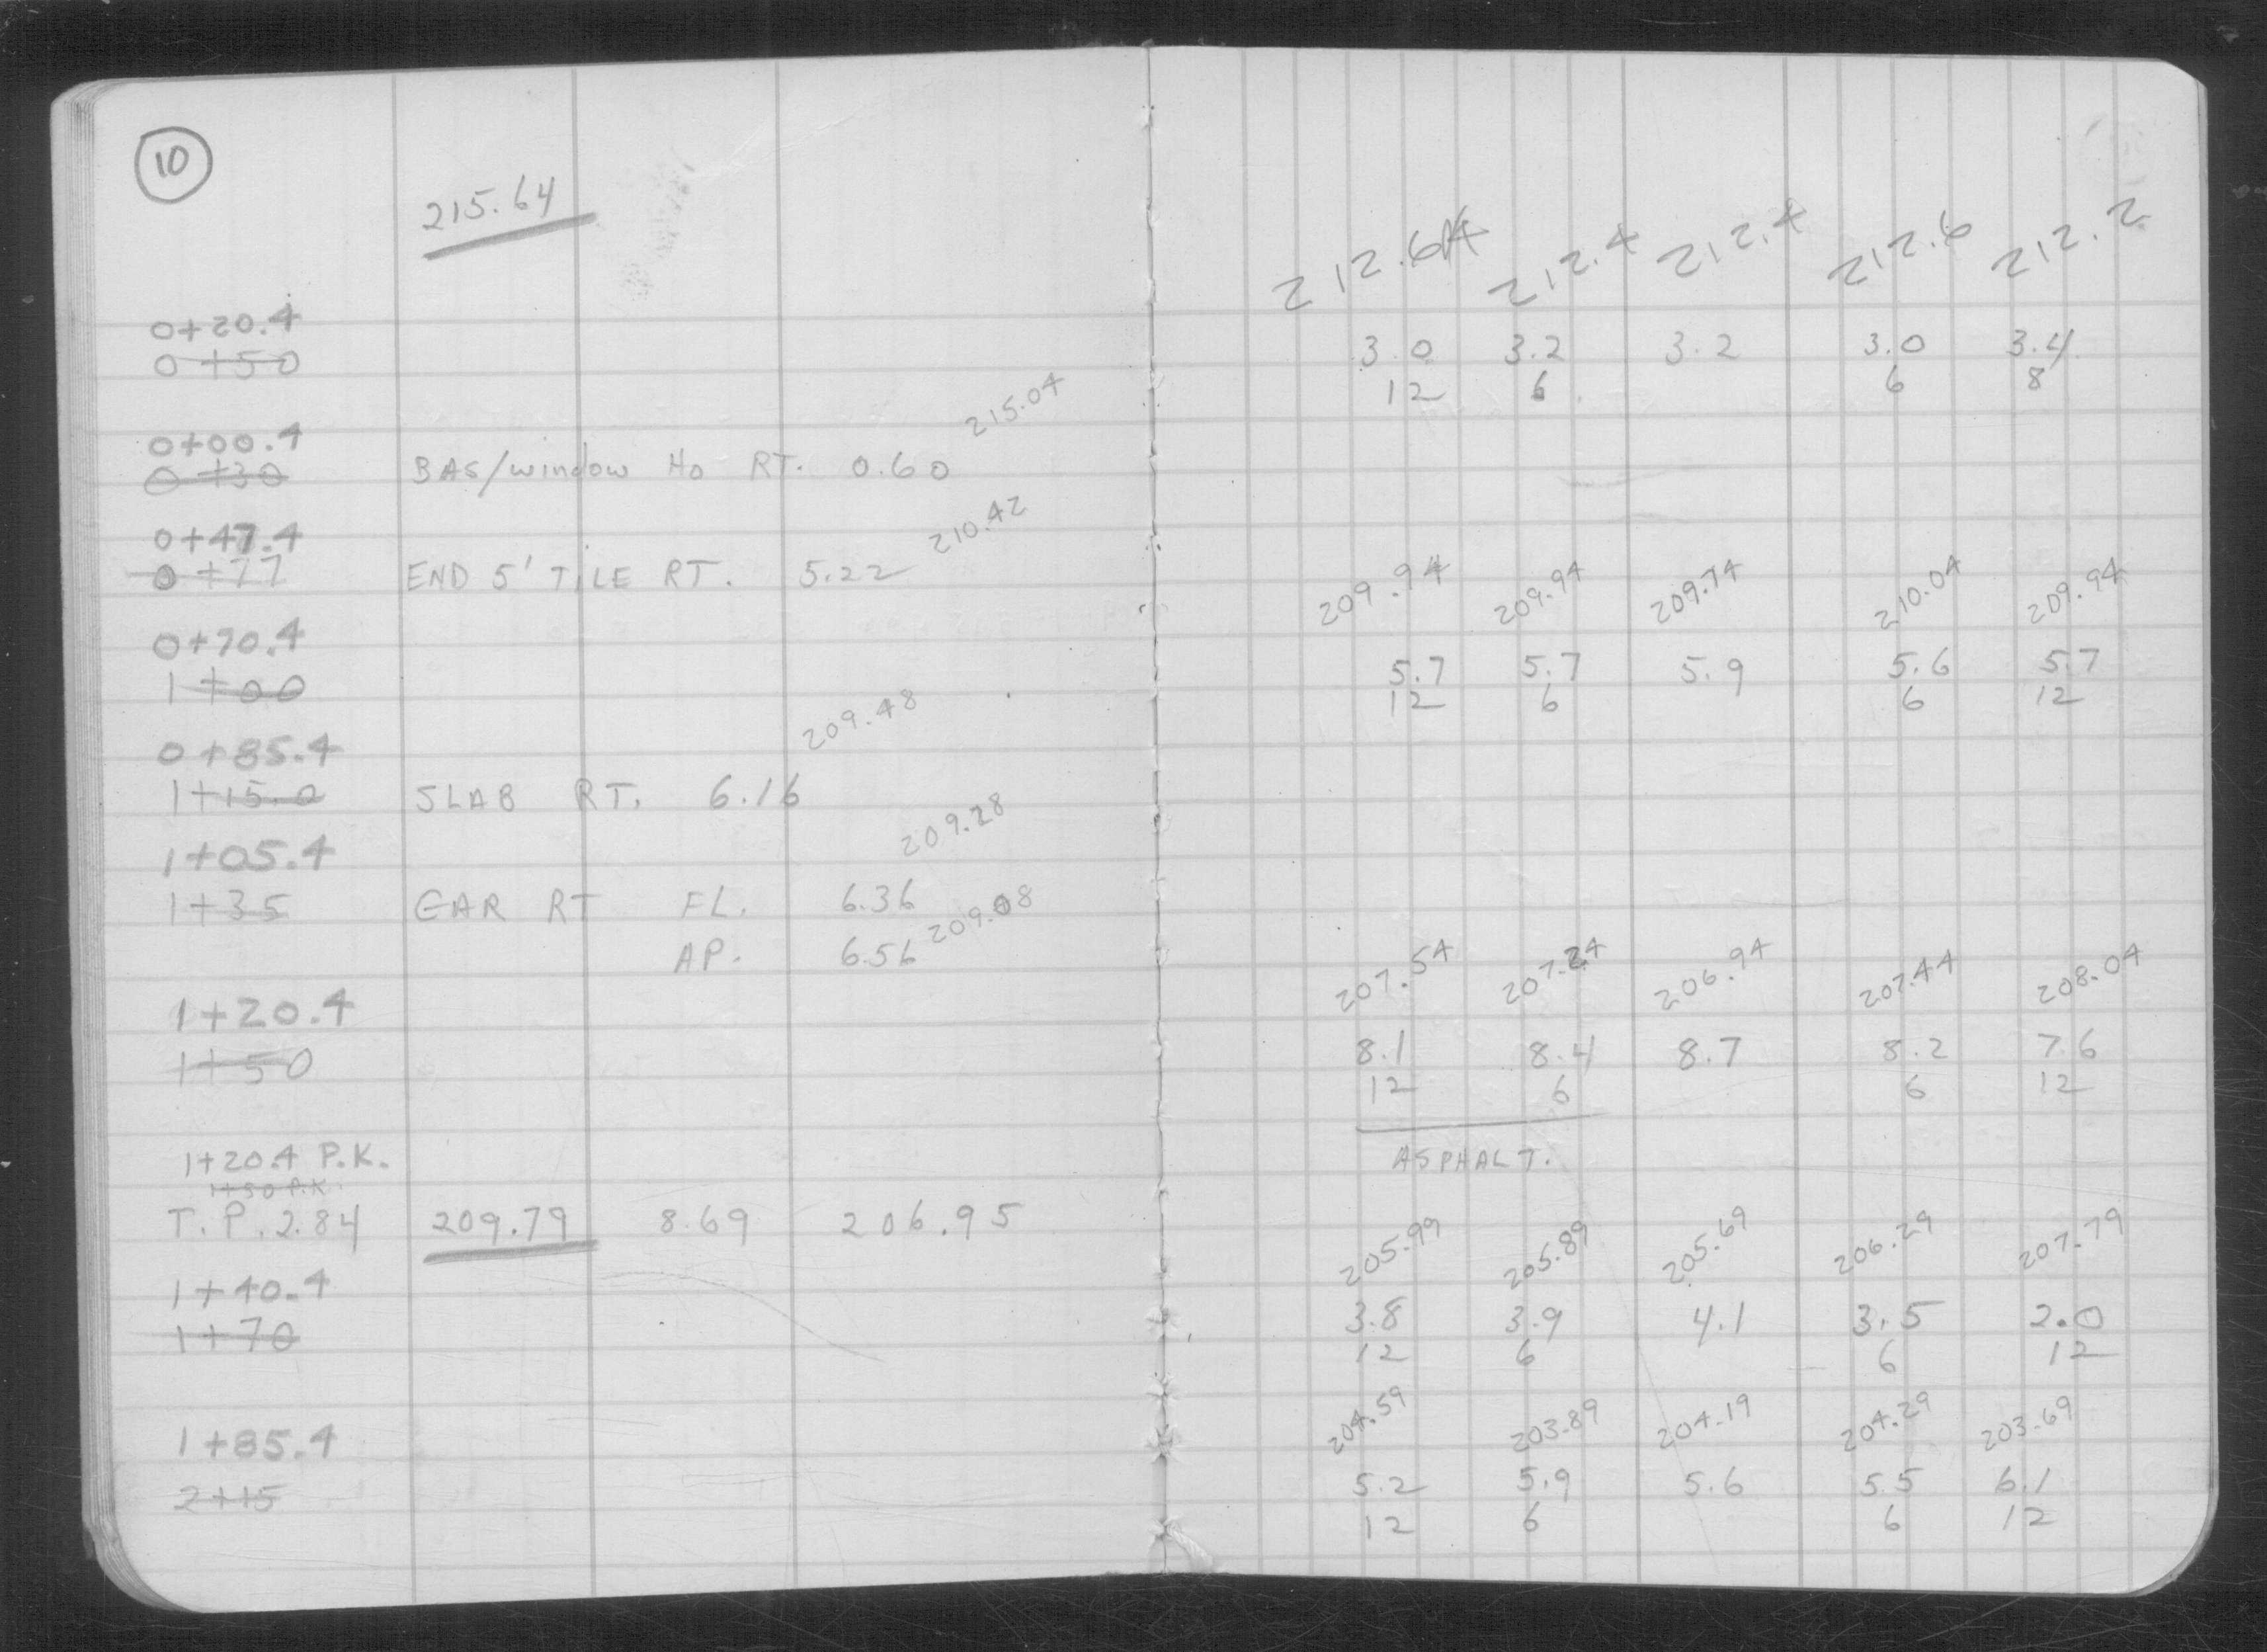 10
215.64
212.64 212.4 212.4 212.6 212.2
0+20.4
0+50 3.0 3.2 3.2 3.0 3.4
12 6 6 8
0+00.4 215.04
0+30 BAS/window Ho RT. 0.60
0+47.4 210.42
0+77 END 5' TILE RT. 5.22
209.94 209.94 209.74 210.04 209.94
0+70.4
1+00 5.7 5.7 5.9 5.6 5.7
12 6 6 12
0+85.4 209.48
1+15.0 SLAB RT. 6.16
1+05.4 209.28
1+35 GAR RT FL. 6.36
AP. 6.56 209.08
207.54 207.24 206.94 207.44 208.04
1+20.4
1+50 8.1 8.4 8.7 8.2 7.6
12 6 6 12
1+20.4 P.K. ASPHALT.
1+50 P.K.
T.P. 2.84 209.79 8.69 206.95
205.99 205.89 205.69 206.29 207.79
1+40.4
1+70 3.8 3.9 4.1 3.5 2.0
12 6 6 12
204.59 203.89 204.19 204.29 203.69
1+85.4
2+15 5.2 5.9 5.6 5.5 6.1
12 6 6 12